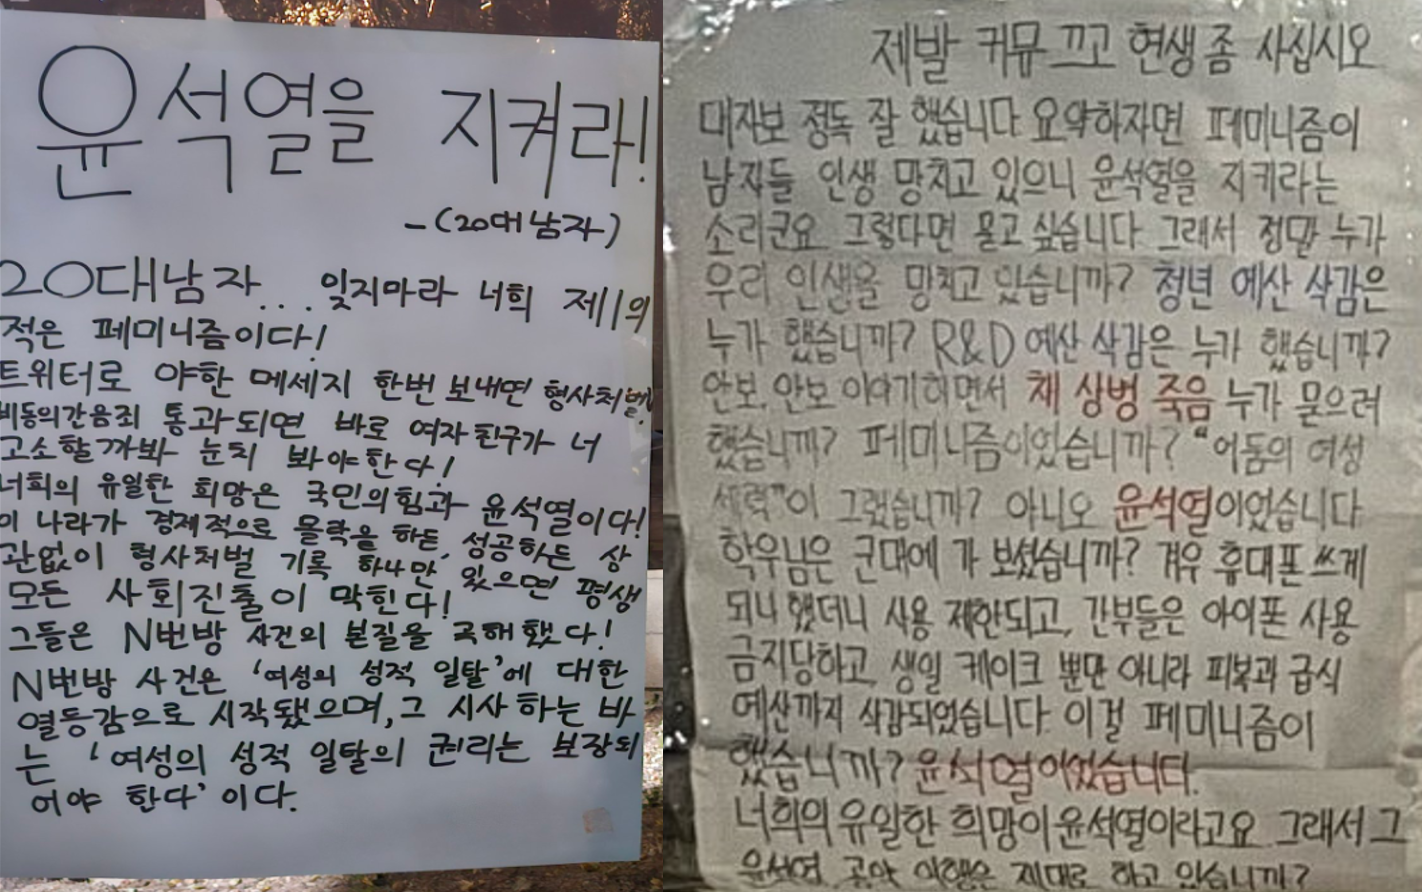 윤석열을 지켜라!
-(20대남자)
20대남자... 잊지마라 너희 제1의
적은 페미니즘이다!
트위터로 야한 메세지 한번 보내면 형사처벌!
비동의간음죄 통과되면 바로 여자친구가 너
고소할까봐 눈치 봐야한다!
너희의 유일한 희망은 국민의힘과 윤석열이다!
이 나라가 경제적으로 몰락을 하든, 성공하든 상
관없이 형사처벌 기록 하나만 있으면 평생
모든 사회진출이 막힌다!
그들은 N번방 사건의 본질을 곡해했다!
N번방 사건은 '여성의 성적 일탈'에 대한
열등감으로 시작됐으며, 그 시사하는 바
는 '여성의 성적 일탈의 권리는 보장되
어야 한다'이다.
제발 커뮤 끄고 현생 좀 사십시오
대자보 정독 잘 했습니다 요약하자면 페미니즘이
남자들 인생 망치고 있으니 윤석열을 지키라는
소리군요 그렇다면 묻고 싶습니다 그래서 정말 누가
우리 인생을 망치고 있습니까? 청년 예산 삭감은
누가 했습니까? R&D 예산 삭감은 누가 했습니까?
안보, 안보 이야기하면서 채 상병 죽음 누가 묻으려
했습니까? 페미니즘이었습니까? "어둠의 여성
세력"이 그랬습니까? 아니오 윤석열이었습니다
학우님은 군대에 가 보셨습니까? 겨우 휴대폰 쓰게
되나 했더니 사용 제한되고, 간부들은 아이폰 사용
금지당하고, 생일 케이크 뿐만 아니라 피복과 급식
예산까지 삭감되었습니다. 이걸 페미니즘이
했습니까? 윤석열이었습니다.
너희의 유일한 희망이 윤석열이라고요 그래서 그
윤석열, 공약 이행은 제대로 하고 있습니까?